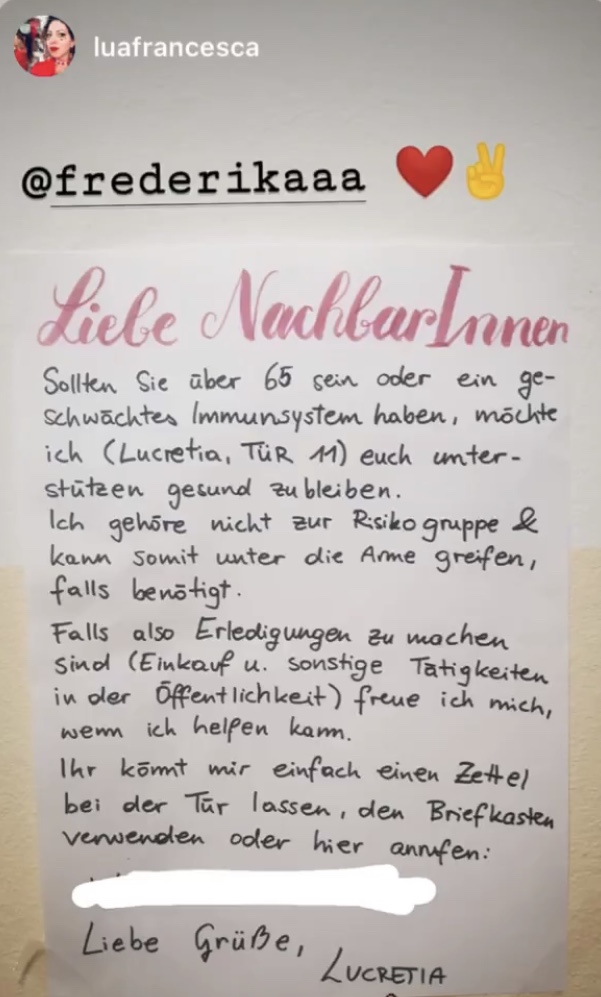 luafrancesca
@frederikaaa ❤️✌️
Liebe NachbarInnen
Sollten Sie über 65 sein oder ein ge-
schwächtes Immunsystem haben, möchte
ich (Lucretia, TÜR 11) euch unter-
stützen gesund zu bleiben.
Ich gehöre nicht zur Risikogruppe &
kann somit unter die Arme greifen,
falls benötigt.
Falls also Erledigungen zu machen
sind (Einkauf u. sonstige Tätigkeiten
in der Öffentlichkeit) freue ich mich,
wenn ich helfen kann.
Ihr könnt mir einfach einen Zettel
bei der Tür lassen, den Briefkasten
verwenden oder hier anrufen:
Liebe Grüße,
LUCRETIA